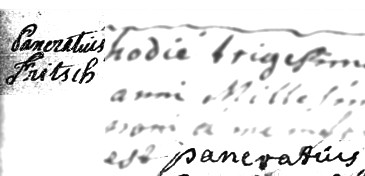 Pancratius
Fritsch
hodie trigessima
anni Millesim
noni a me
est pancratius